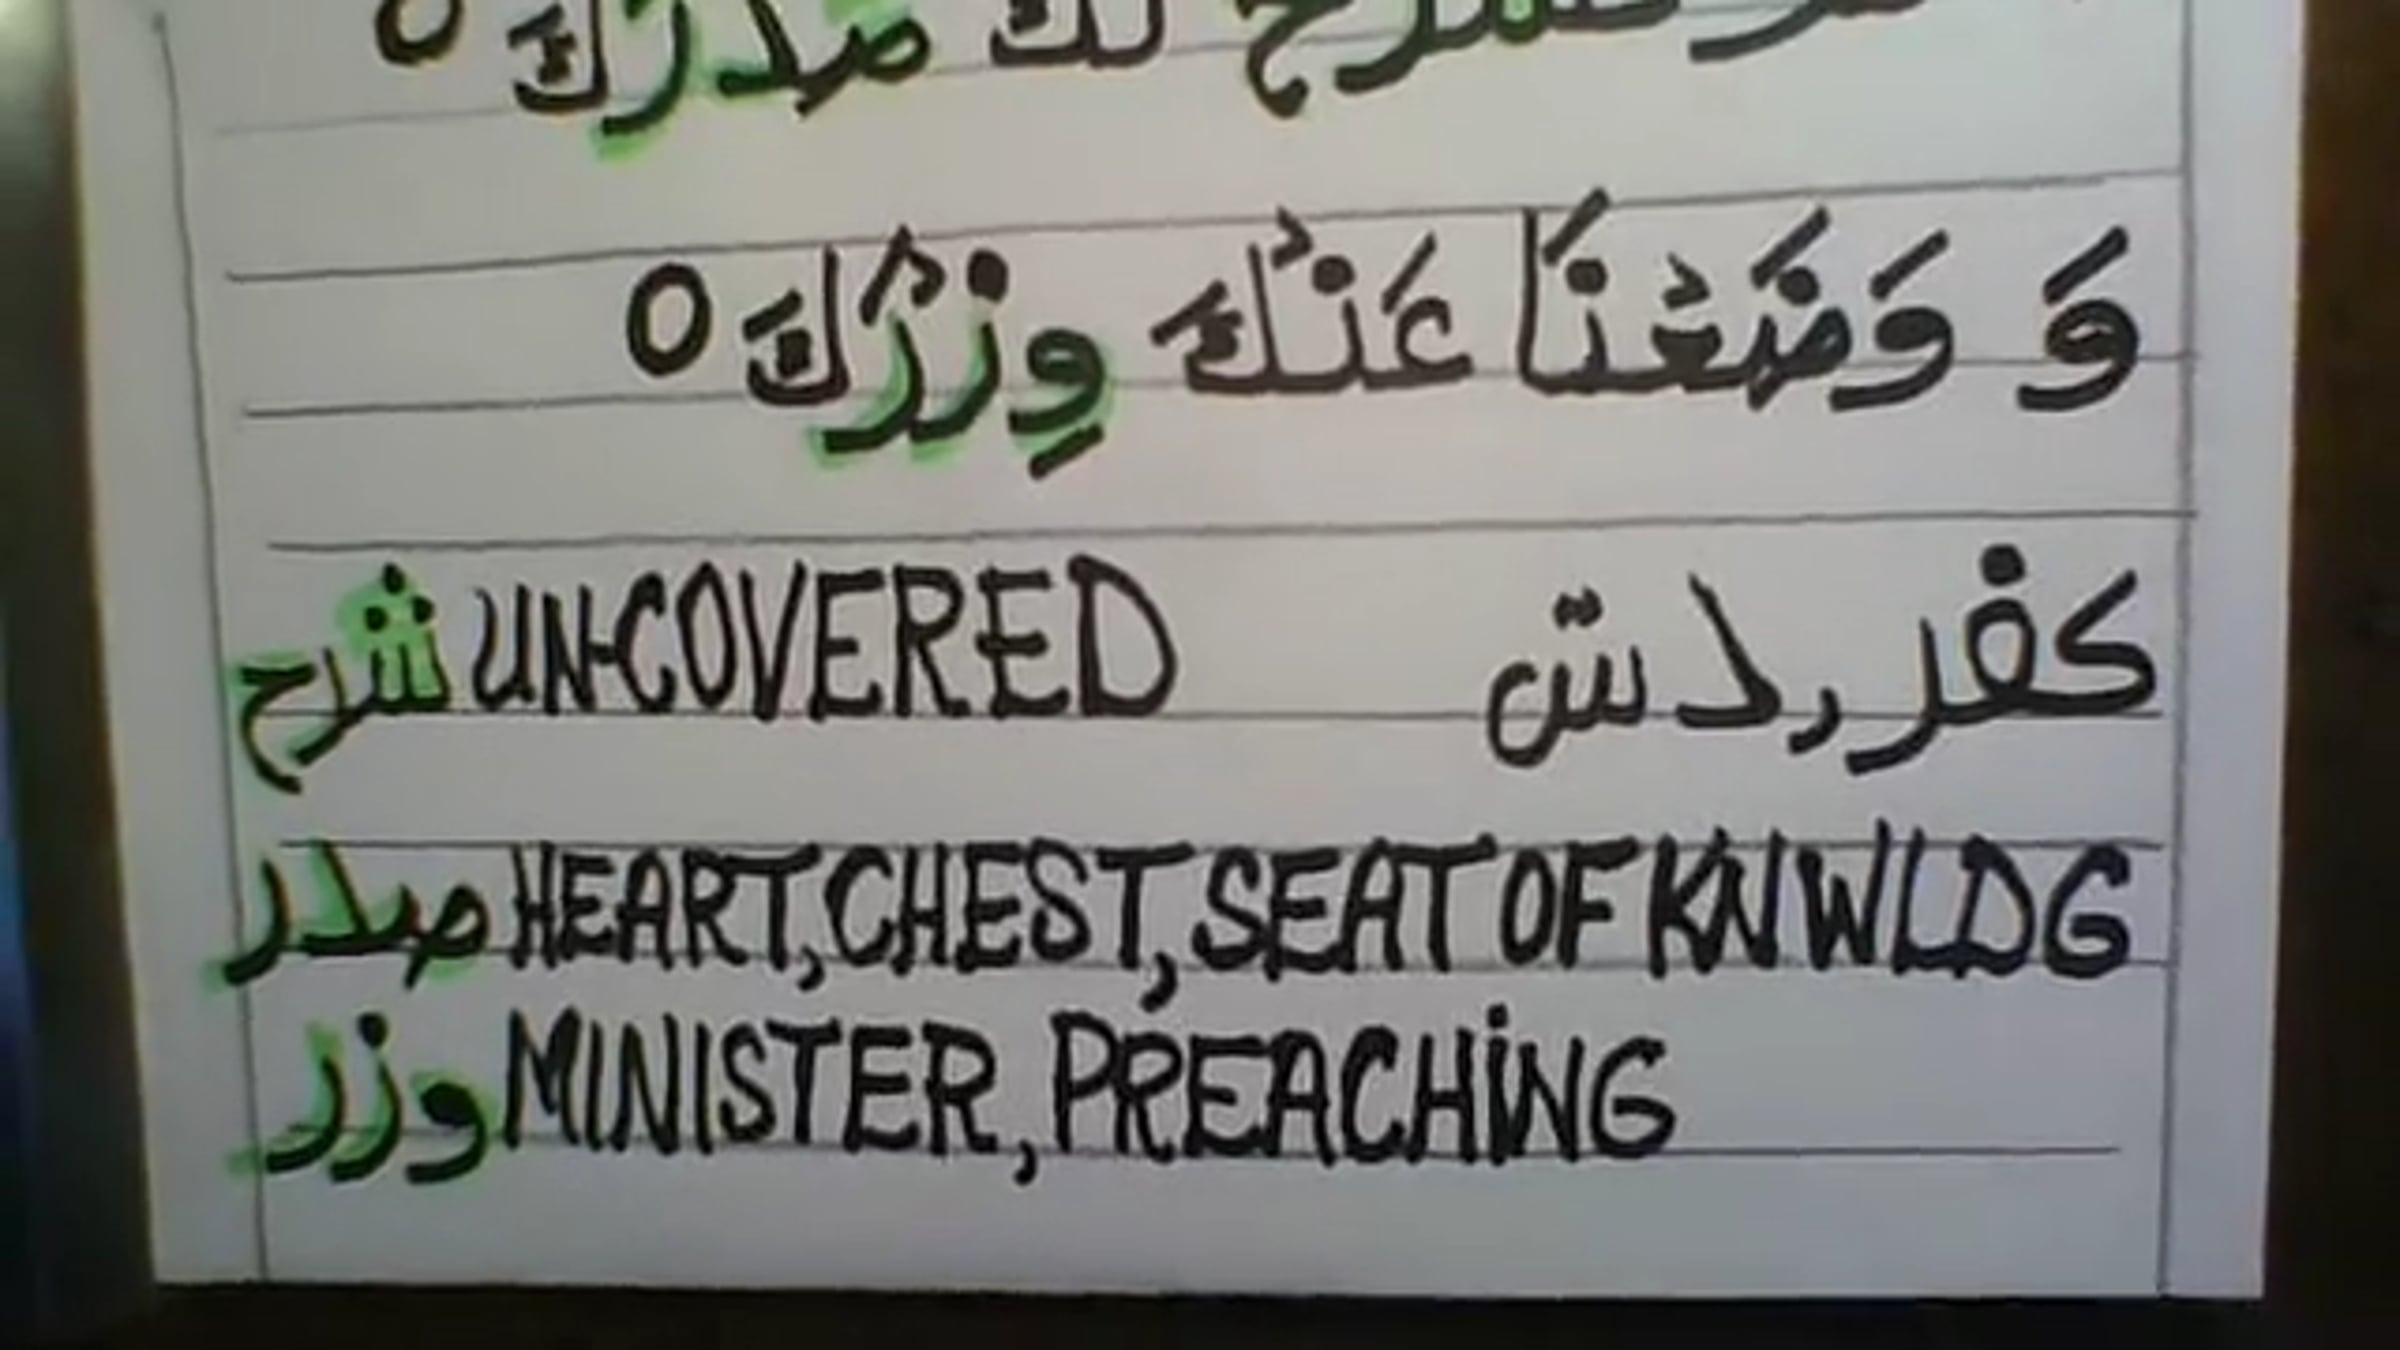 نشرح لك صدرك ○
وَ وَضَعْنَا عَنْكَ وِزْرُكَ ○
شرح UN-COVERED كفر رد ش
صدر HEART, CHEST, SEAT OF KNWLDG
وزر MINISTER, PREACHING